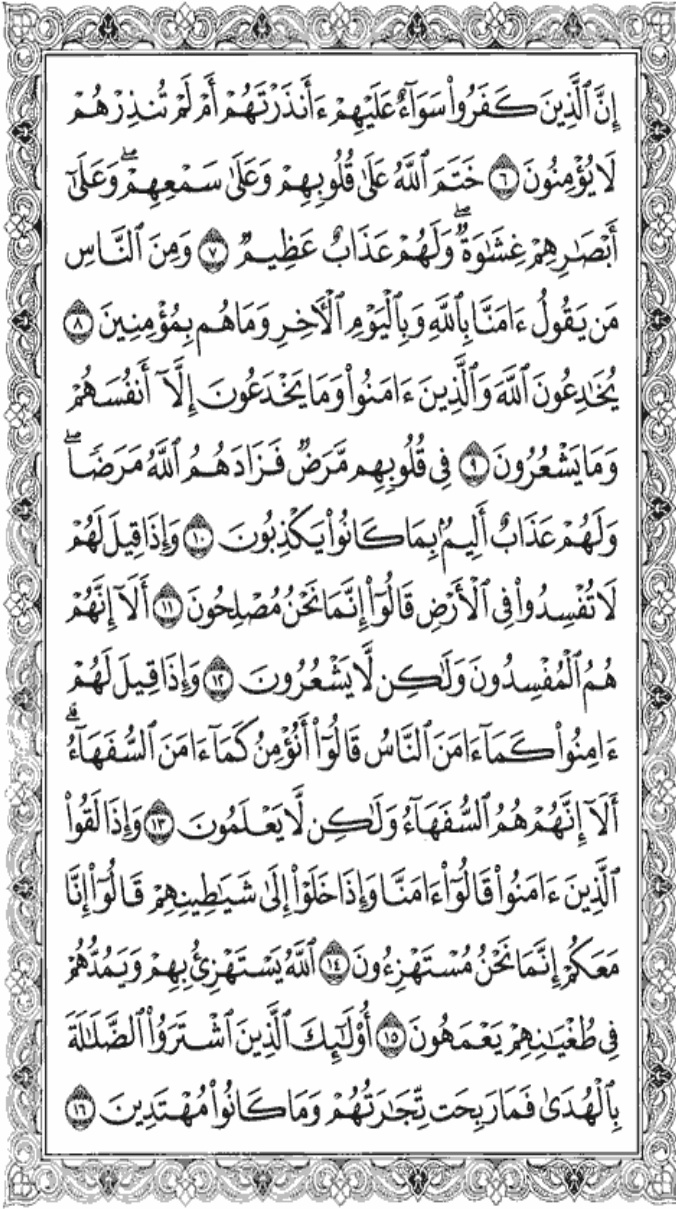 إِنَّ ٱلَّذِينَ كَفَرُوا۟ سَوَآءٌ عَلَيْهِمْ ءَأَنذَرْتَهُمْ أَمْ لَمْ تُنذِرْهُمْ
لَا يُؤْمِنُونَ ٦ خَتَمَ ٱللَّهُ عَلَىٰ قُلُوبِهِمْ وَعَلَىٰ سَمْعِهِمْ ۖ وَعَلَىٰٓ
أَبْصَـٰرِهِمْ غِشَـٰوَةٌ ۖ وَلَهُمْ عَذَابٌ عَظِيمٌ ٧ وَمِنَ ٱلنَّاسِ
مَن يَقُولُ ءَامَنَّا بِٱللَّهِ وَبِٱلْيَوْمِ ٱلْـَٔاخِرِ وَمَا هُم بِمُؤْمِنِينَ ٨
يُخَـٰدِعُونَ ٱللَّهَ وَٱلَّذِينَ ءَامَنُوا۟ وَمَا يَخْدَعُونَ إِلَّآ أَنفُسَهُمْ
وَمَا يَشْعُرُونَ ٩ فِى قُلُوبِهِم مَّرَضٌ فَزَادَهُمُ ٱللَّهُ مَرَضًا ۖ
وَلَهُمْ عَذَابٌ أَلِيمٌۢ بِمَا كَانُوا۟ يَكْذِبُونَ ١٠ وَإِذَا قِيلَ لَهُمْ
لَا تُفْسِدُوا۟ فِى ٱلْأَرْضِ قَالُوٓا۟ إِنَّمَا نَحْنُ مُصْلِحُونَ ١١ أَلَآ إِنَّهُمْ
هُمُ ٱلْمُفْسِدُونَ وَلَـٰكِن لَّا يَشْعُرُونَ ١٢ وَإِذَا قِيلَ لَهُمْ
ءَامِنُوا۟ كَمَآ ءَامَنَ ٱلنَّاسُ قَالُوٓا۟ أَنُؤْمِنُ كَمَآ ءَامَنَ ٱلسُّفَهَآءُ ۗ
أَلَآ إِنَّهُمْ هُمُ ٱلسُّفَهَآءُ وَلَـٰكِن لَّا يَعْلَمُونَ ١٣ وَإِذَا لَقُوا۟
ٱلَّذِينَ ءَامَنُوا۟ قَالُوٓا۟ ءَامَنَّا وَإِذَا خَلَوْا۟ إِلَىٰ شَيَـٰطِينِهِمْ قَالُوٓا۟ إِنَّا
مَعَكُمْ إِنَّمَا نَحْنُ مُسْتَهْزِءُونَ ١٤ ٱللَّهُ يَسْتَهْزِئُ بِهِمْ وَيَمُدُّهُمْ
فِى طُغْيَـٰنِهِمْ يَعْمَهُونَ ١٥ أُو۟لَـٰٓئِكَ ٱلَّذِينَ ٱشْتَرَوُا۟ ٱلضَّلَـٰلَةَ
بِٱلْهُدَىٰ فَمَا رَبِحَت تِّجَـٰرَتُهُمْ وَمَا كَانُوا۟ مُهْتَدِينَ ١٦